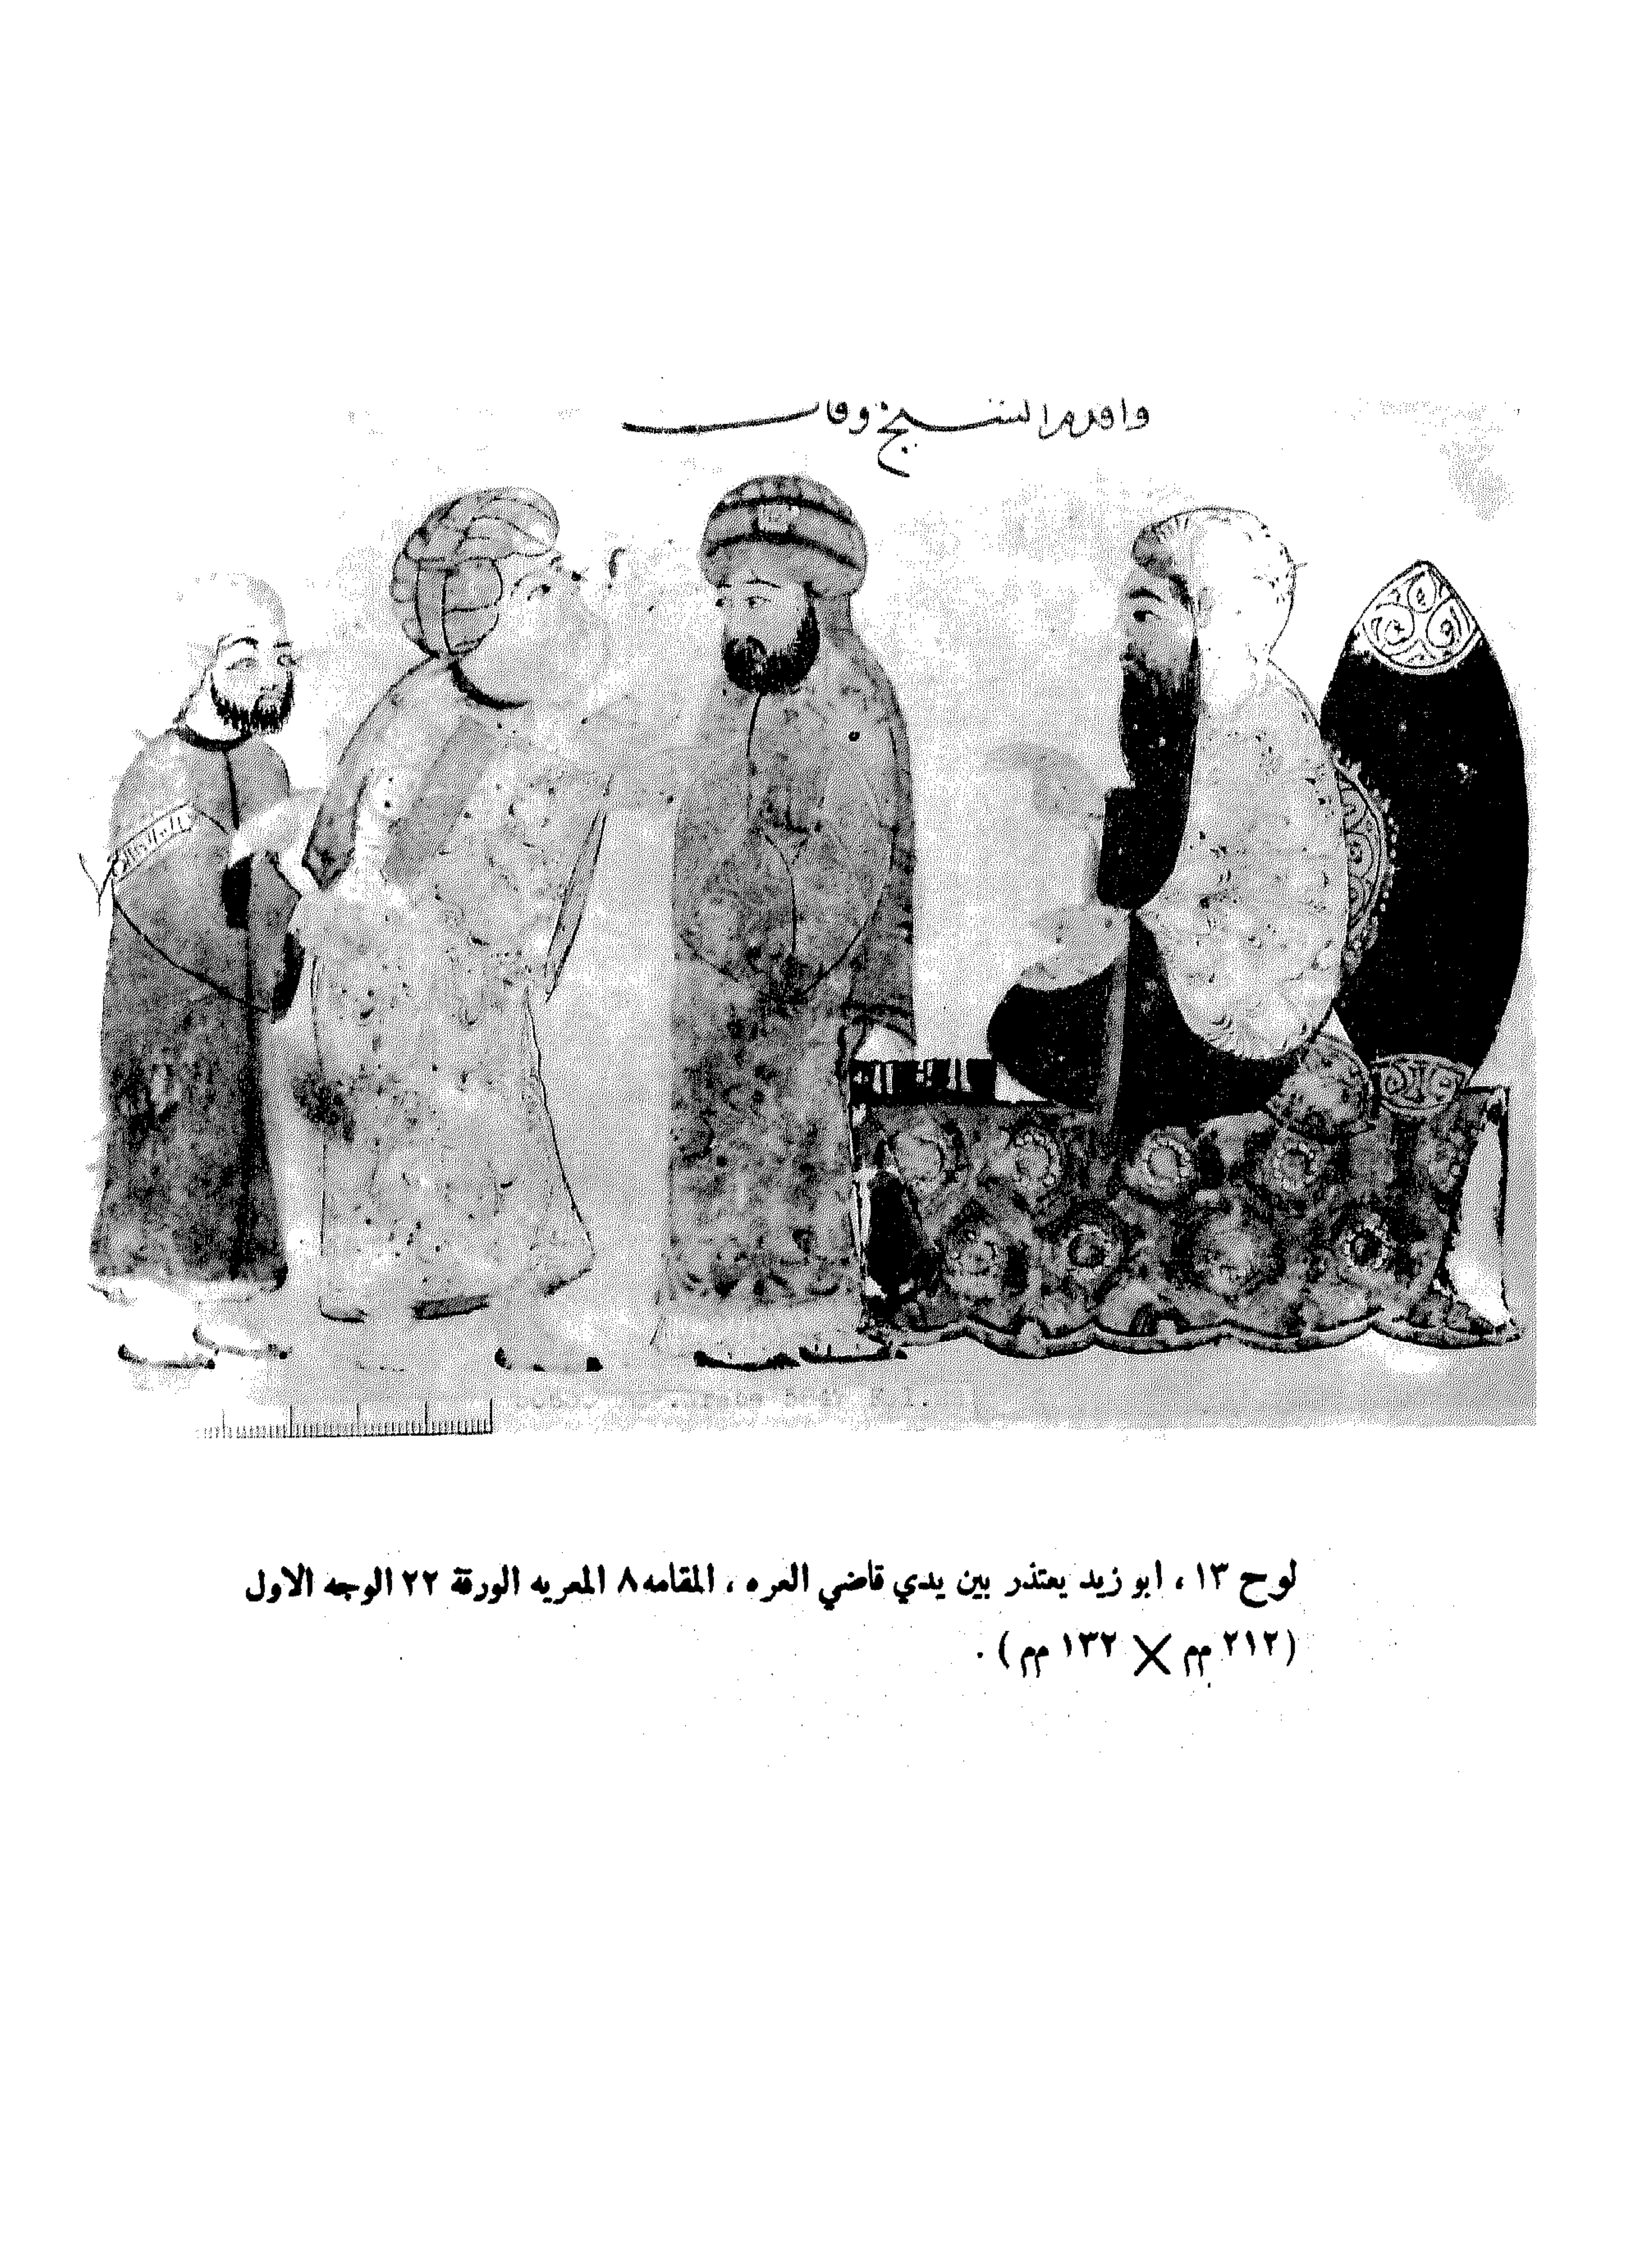 واقدم الشيخ وقال
لوح ١٣ ، ابو زيد يعتذر بين يدي قاضي العره ، المقامه ٨ المعريه الورقة ٢٢ الوجه الاول
(٢١٢ مم × ١٣٢ مم) .